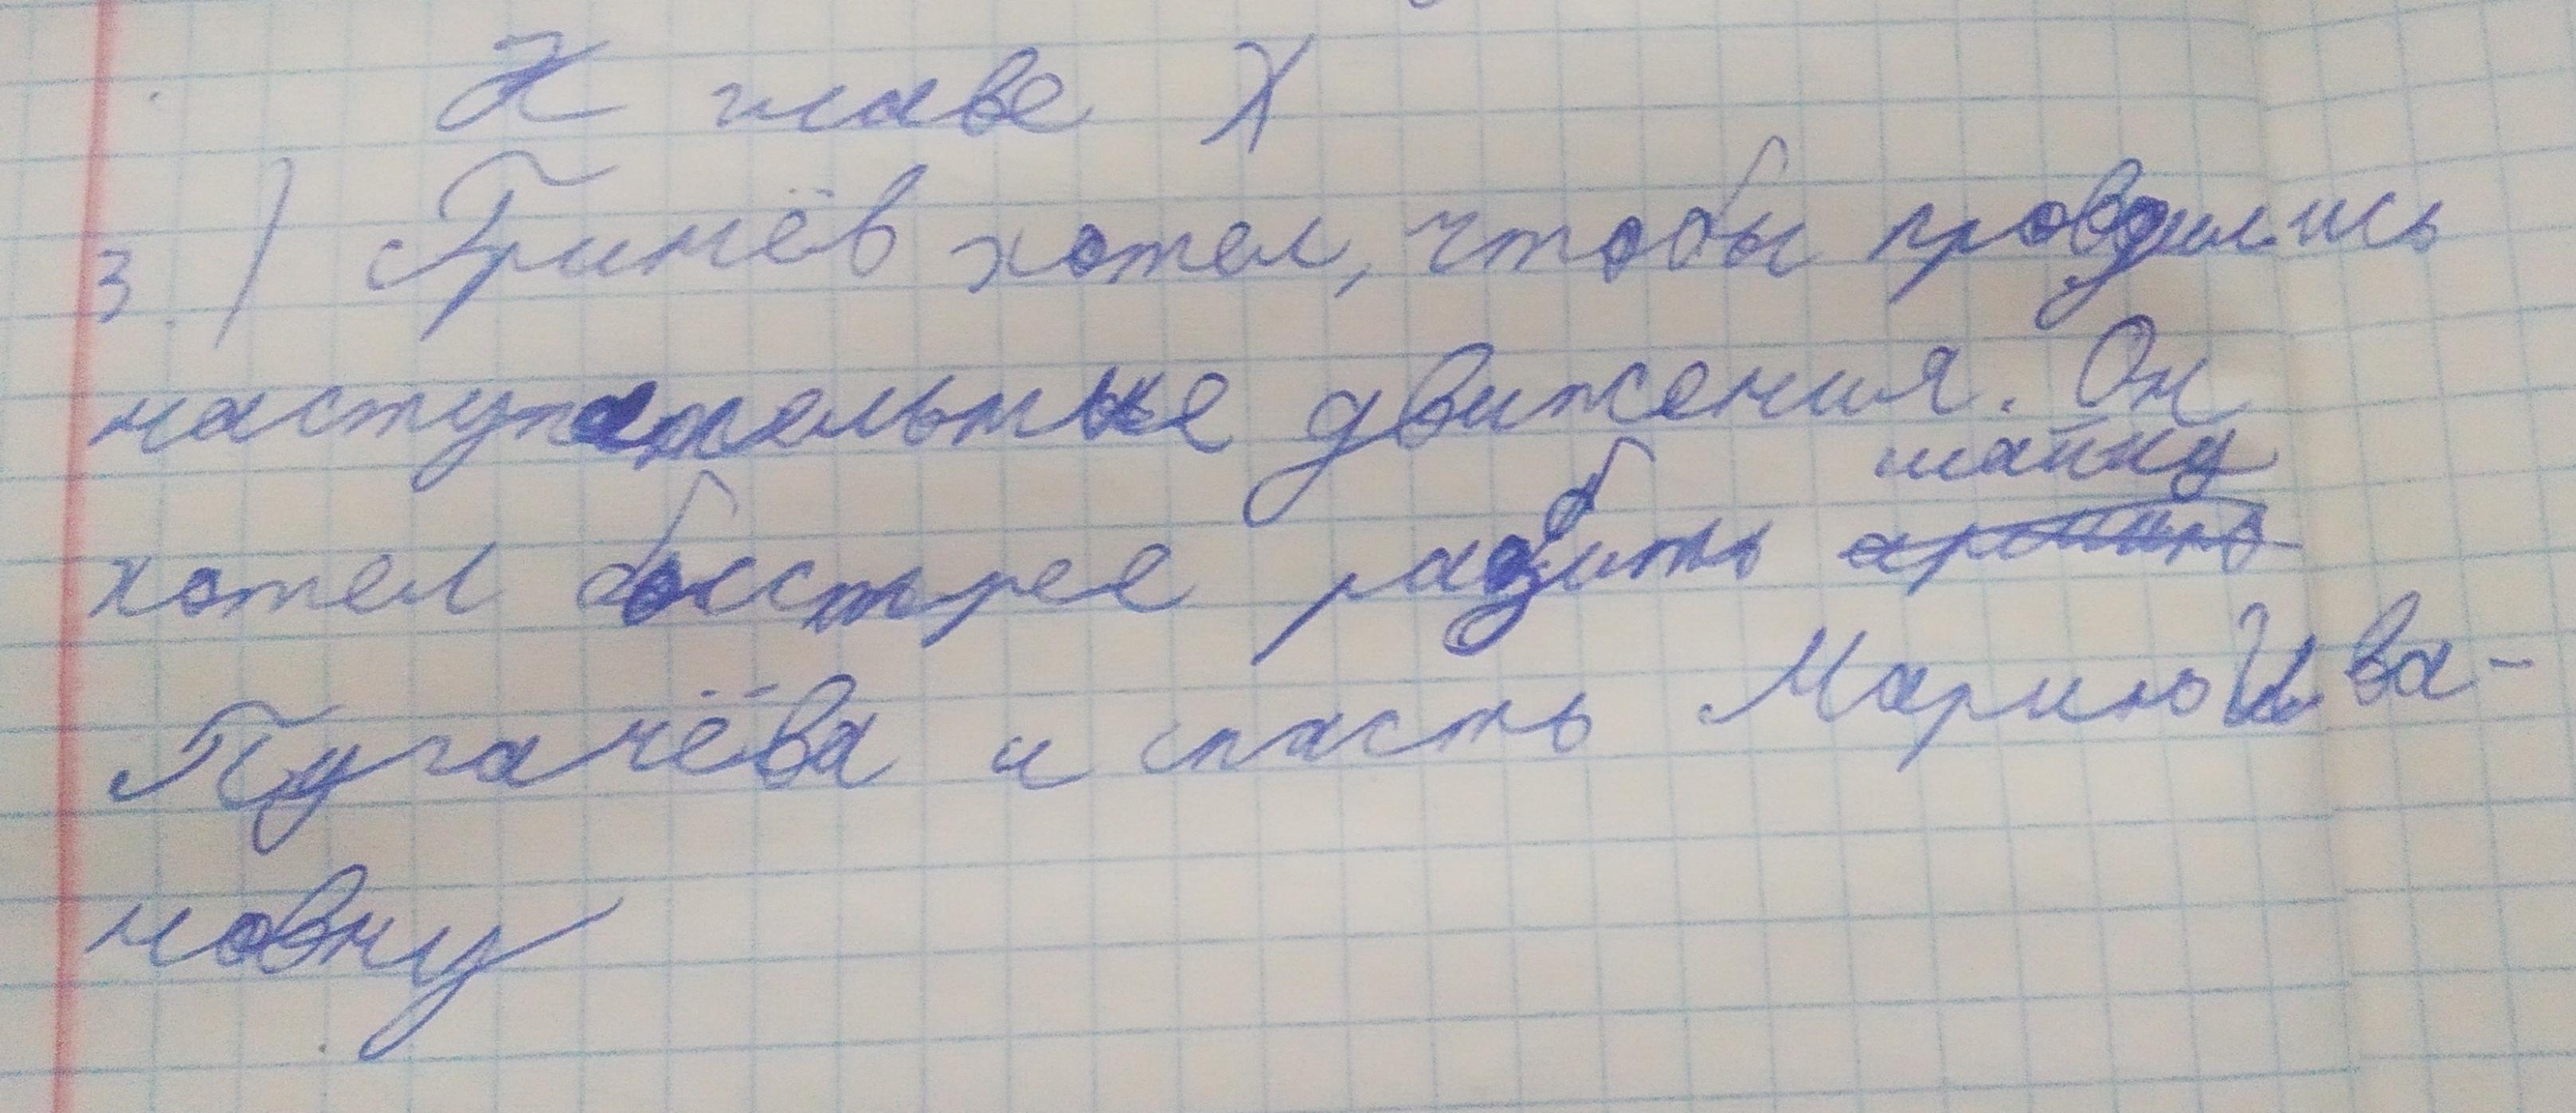 К главе X
3.) Гринёв хотел, чтобы проводились
наступательные движения. Он
хотел быстрее разбить шайку
Пугачёва и спасть Марию Ива-
новну